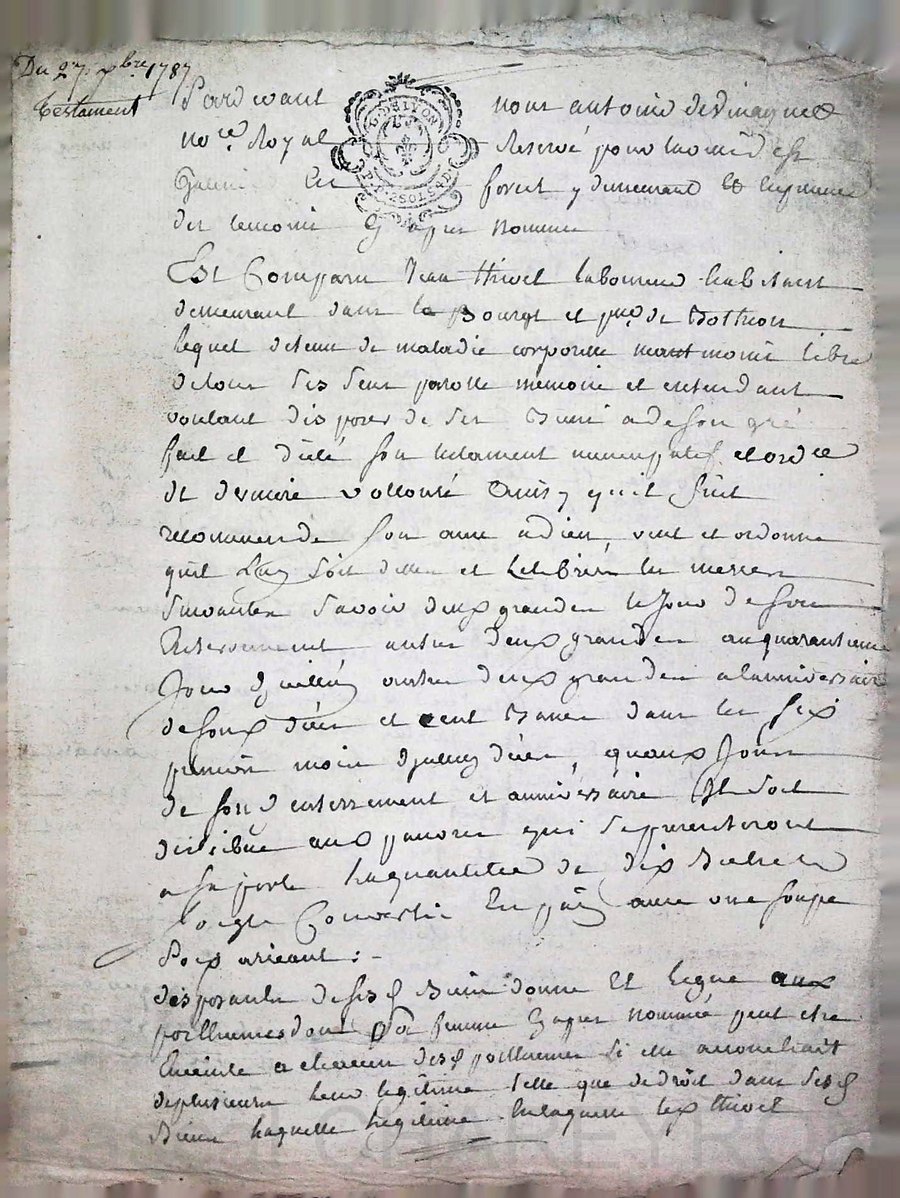 Du 27 xbre 1787
Testament
Pardevant nous antoine
nore Royal Reservé pour
forest y demeurant Et En presence
des temoins Cy apres nommes
Est Comparu Jean thivet laboureur habitant
demeurant dans le Bourg et psse de Bothion
lequel detenu de maladie corporelle neantmoins libre
de tous ses sens parolle memoire et entendant
voulant disposer de ses Biens a de son gré
fait et dicté son testament nuncupatif et ordce
de derniere vollonté Ainsy quil suit
recommende son ame a dieu, veut et ordonne
quil soit dittes et Celebrées les messes
suivantes Savoir deux grandes le Jour de son
Enterrement autres deux grandes au quarantieme
Jour autres deux grandes a lanniversaire
de son deces et cent Basses dans les six
premiers mois deces, quaux Jours
de son d enterrement et anniversaire Il soit
distribué aux pauvres qui se presenteront
a sa porte la quantitée de dix Bichets
soigle Convertie En pain avec une soupe
pois
disposants de sesd Biens donne Et legue aux
posthumes dont sa femme Cy apres nommée peut etre
Enceinte a chacun desd posthumes si elle accouchait
de plusieurs leur legitime telle que de droit dans sesd
Biens laquelle legitime led thivet